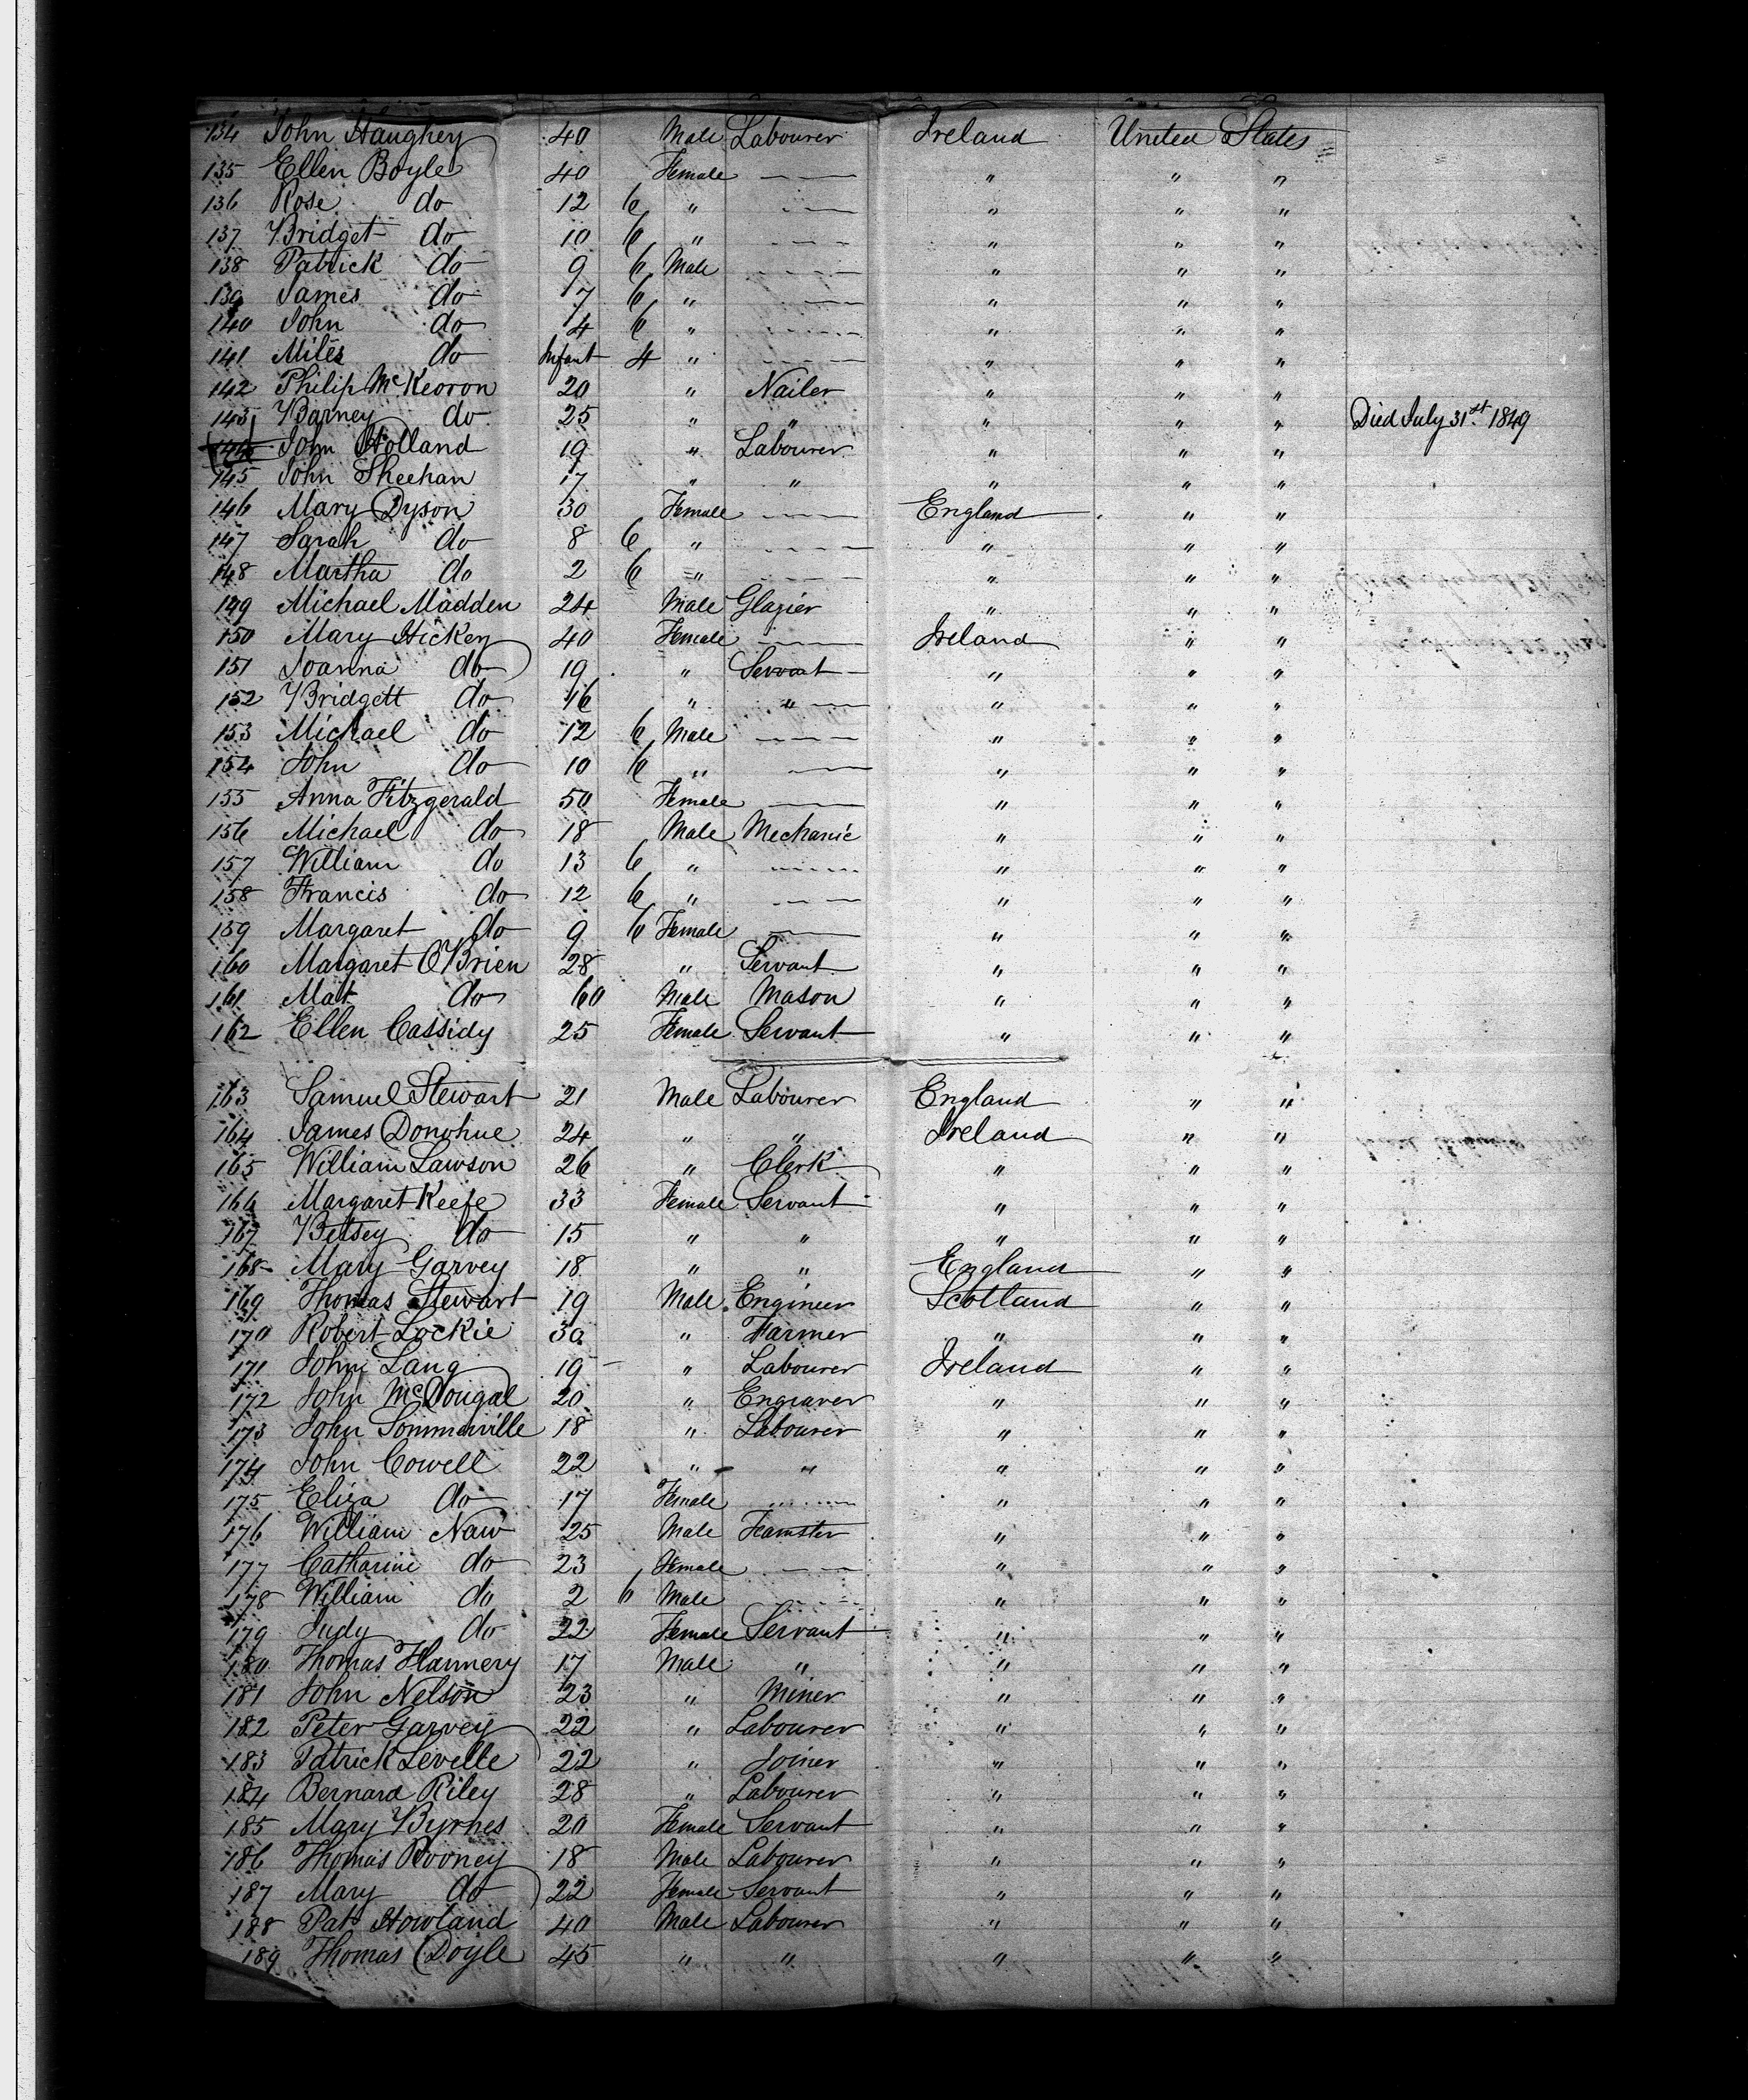 134 John Haughey 40 Male Labourer Ireland United States
135 Ellen Boyle 40 Female — " " "
136 Rose do 12 6 " — " " "
137 Bridget do 10 6 " — " " "
138 Patrick do 9 6 Male — " " "
139 James do 7 6 " — " " "
140 John do 4 6 " — " " "
141 Miles do Infant 4 " — " " "
142 Philip McKeoron 20 " Nailer " " "
143 Barney do 25 " " " " " Died July 31st 1849
144 John Holland 19 " Labourer " " "
145 John Sheehan 17 " " " " "
146 Mary Dyson 30 Female — England " "
147 Sarah do 8 6 " — " " "
148 Martha do 2 6 " — " " "
149 Michael Madden 24 Male Glazier " " "
150 Mary Hickey 40 Female — Ireland " "
151 Joanna do 19 " Servant " " "
152 Bridgett do 16 " " " " "
153 Michael do 12 6 Male — " " "
154 John do 10 6 " — " " "
155 Anna Fitzgerald 50 Female — " " "
156 Michael do 18 Male Mechanic " " "
157 William do 13 6 " — " " "
158 Francis do 12 6 " — " " "
159 Margaret do 9 6 Female — " " "
160 Margaret O'Brien 28 " Servant " " "
161 Mat do 60 Male Mason " " "
162 Ellen Cassidy 25 Female Servant " " "
163 Samuel Stewart 21 Male Labourer England " "
164 James Donohue 24 " " Ireland " "
165 William Lawson 26 " Clerk " " "
166 Margaret Keefe 33 Female Servant " " "
167 Betsey do 15 " " " " "
168 Mary Garvey 18 " " England " "
169 Thomas Stewart 19 Male Engineer Scotland " "
170 Robert Lockie 30 " Farmer " " "
171 John Lang 19 " Labourer Ireland " "
172 John McDougal 20 " Engraver " " "
173 John Sommerville 18 " Labourer " " "
174 John Cowell 22 " " " " "
175 Eliza do 17 Female — " " "
176 William Naw 25 Male Teamster " " "
177 Catharine do 23 Female — " " "
178 William do 2 6 Male — " " "
179 Judy do 22 Female Servant " " "
180 Thomas Flannery 17 Male " " " "
181 John Nelson 23 " Miner " " "
182 Peter Garvey 22 " Labourer " " "
183 Patrick Levelle 22 " Joiner " " "
184 Bernard Riley 28 " Labourer " " "
185 Mary Byrnes 20 Female Servant " " "
186 Thomas Rooney 18 Male Labourer " " "
187 Mary do 22 Female Servant " " "
188 Pat Howland 40 Male Labourer " " "
189 Thomas Doyle 45 " " " " "